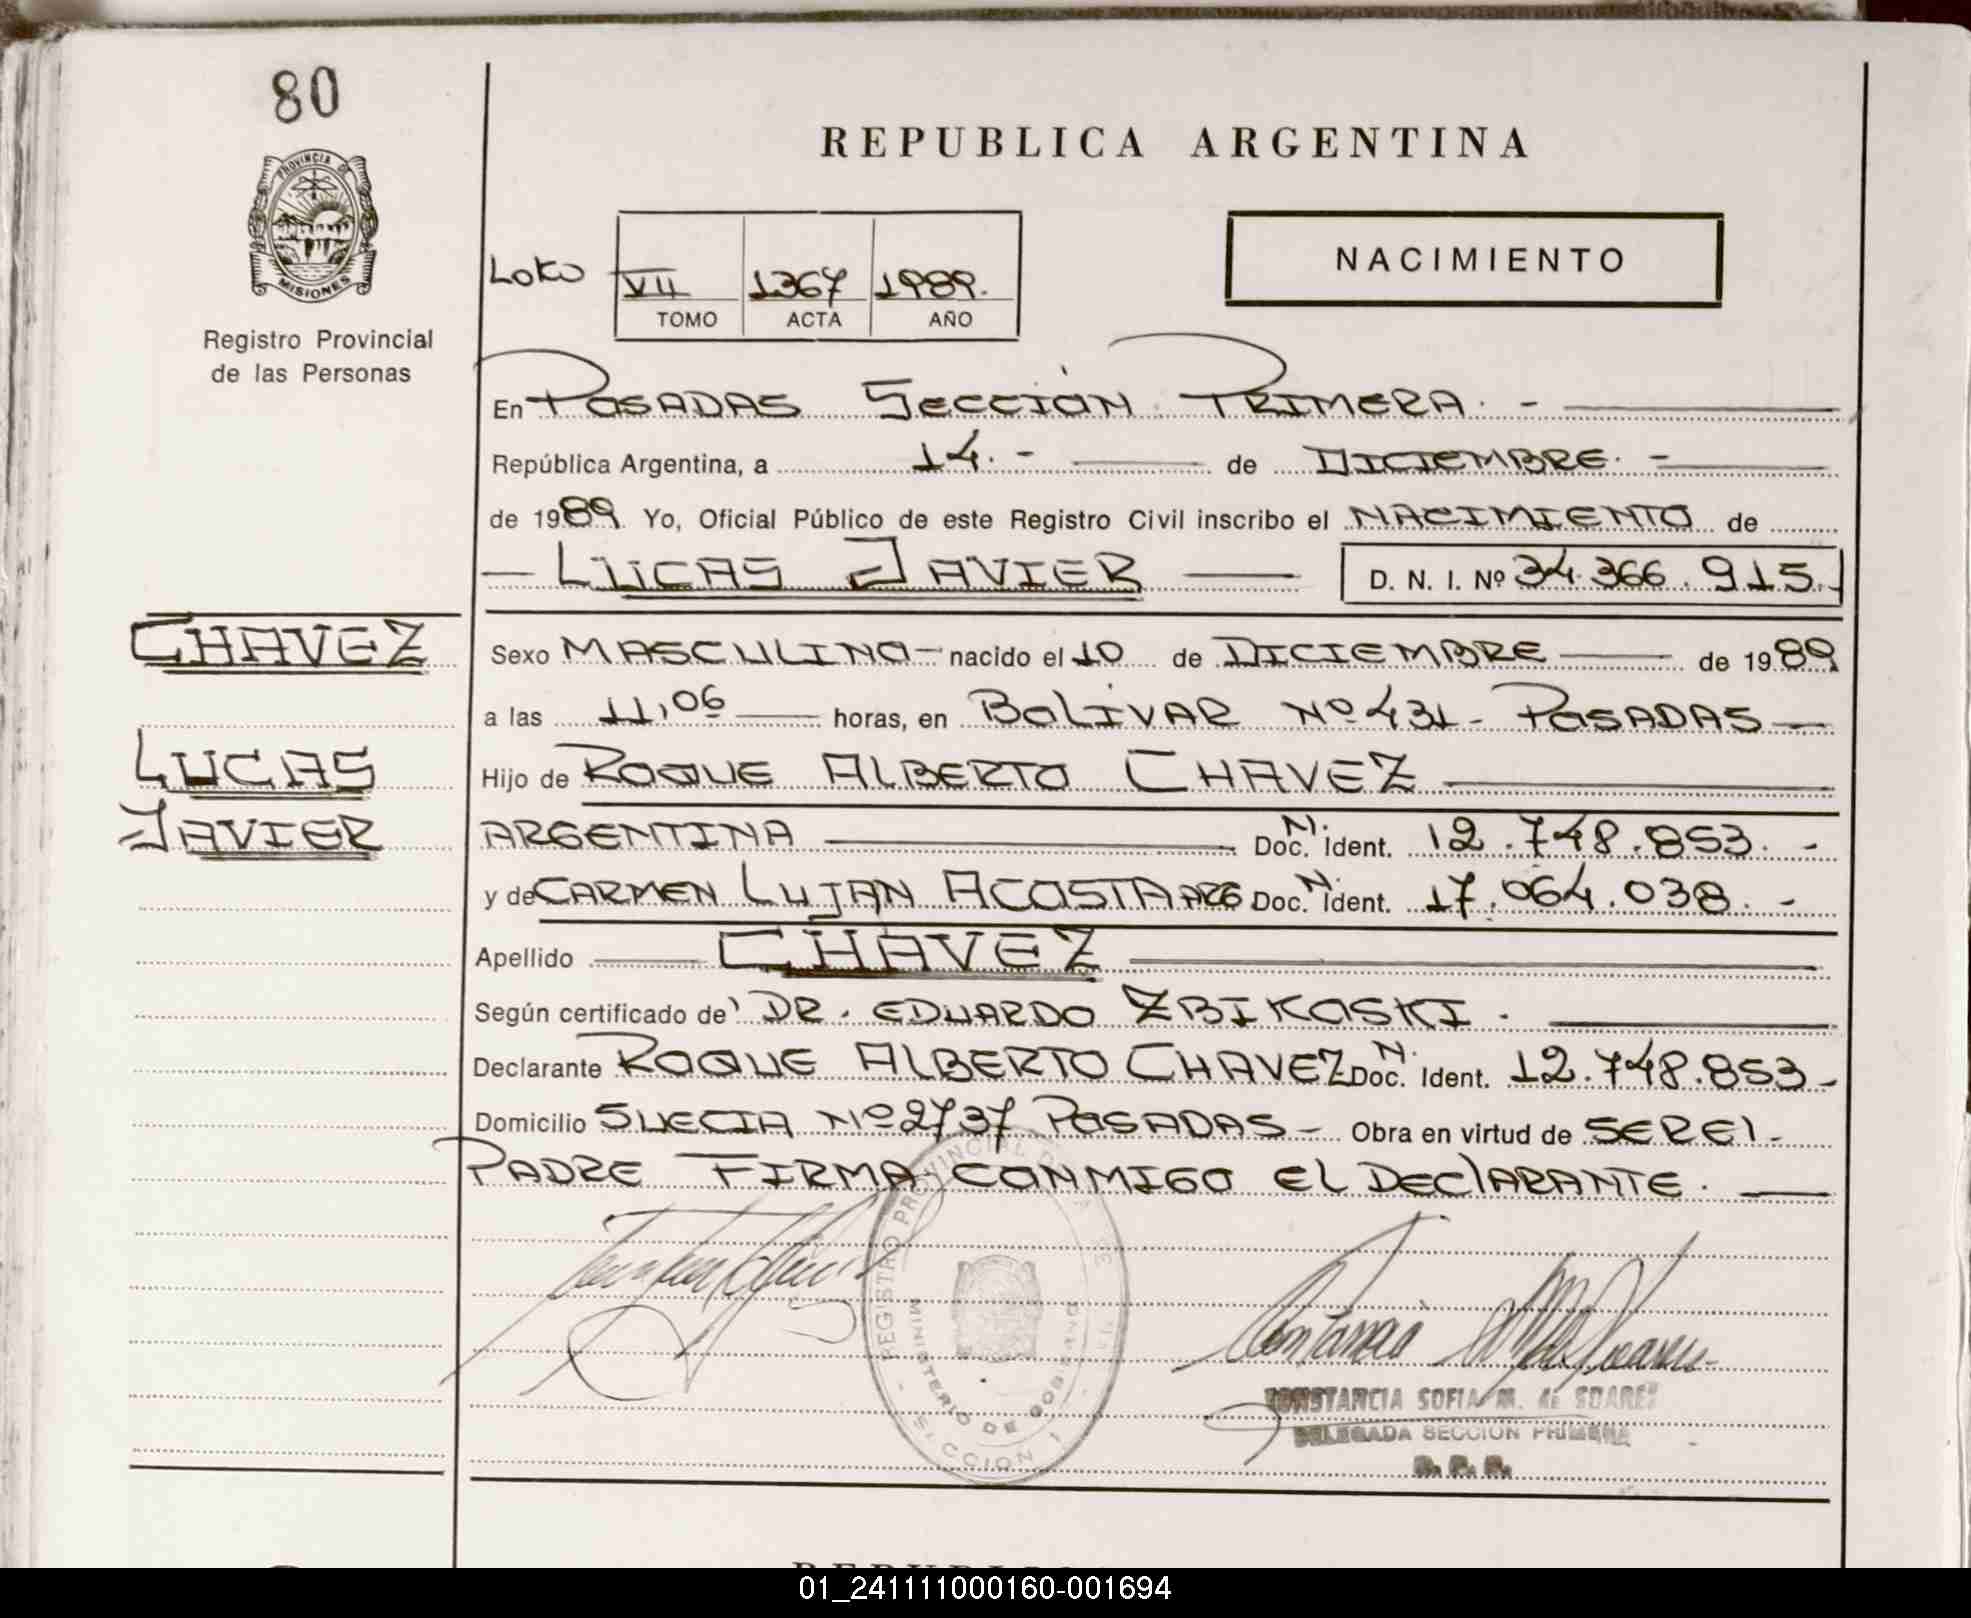 80
REPUBLICA ARGENTINA
PROVINCIA DE
MISIONES
Registro Provincial
de las Personas
VII 1367 1989.
TOMO ACTA AÑO
NACIMIENTO
En POSADAS SECCIÓN PRIMERA. -
República Argentina, a 14. - de DICIEMBRE. -
de 1989. Yo, Oficial Público de este Registro Civil inscribo el NACIMIENTO de
— LUCAS JAVIER — D. N. I. Nº 34.366.915.-
CHAVEZ
Sexo MASCULINO - nacido el 10 de DICIEMBRE — de 1989
a las 11,06 — horas, en BOLIVAR Nº 431 - POSADAS —
LUCAS
Hijo de ROQUE ALBERTO CHAVEZ
JAVIER
ARGENTINA — Doc. N. Ident. 12.748.853. -
y de CARMEN LUJAN ACOSTA ARG Doc. N. Ident. 17.064.038. -
Apellido — CHAVEZ —
Según certificado de DR. EDUARDO ZBIKOSKI. —
Declarante ROQUE ALBERTO CHAVEZ Doc. N. Ident. 12.748.853 -
Domicilio SUECIA Nº 2737 POSADAS - Obra en virtud de SER EL -
PADRE FIRMA CONMIGO EL DECLARANTE. —
REGISTRO PROVINCIAL DE
MINISTERIO DE GOBIERNO
SECCION 1
CONSTANCIA SOFIA M. de SUAREZ
DELEGADA SECCION PRIMERA
R. P. P.
01_241111000160-001694